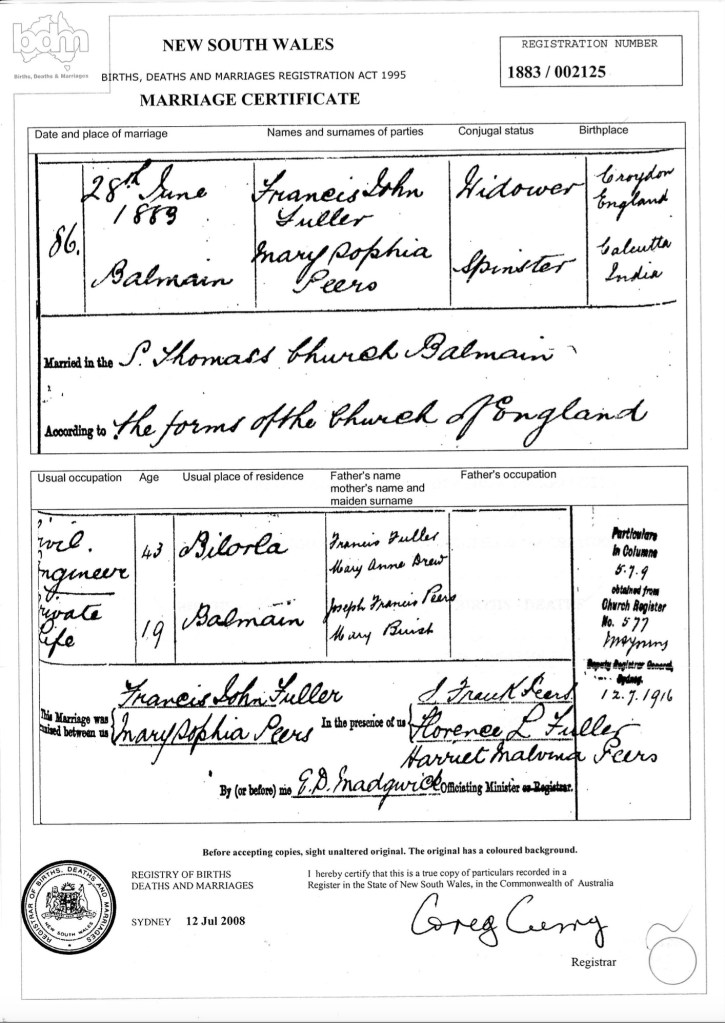 bdm
Births, Deaths & Marriages
NEW SOUTH WALES
BIRTHS, DEATHS AND MARRIAGES REGISTRATION ACT 1995
MARRIAGE CERTIFICATE
REGISTRATION NUMBER
1883 / 002125
Date and place of marriage Names and surnames of parties Conjugal status Birthplace
86.
28th June
1883
Balmain
Francis John
Fuller
Mary Sophia
Peers
Widower
Spinster
Croydon
England
Calcutta
India
Married in the S. Thomas's Church Balmain
According to the forms of the Church of England
Usual occupation Age Usual place of residence Father's name
mother's name and
maiden surname
Father's occupation
ivil.
ngineer
43
Bilorla
Francis Fuller
Mary Anne Drew
rivate
life
19
Balmain
Joseph Francis Peers
Mary
Particulars
in Columns
5.7.9
obtained from
Church Register
No. 577
Deputy Registrar General,
Sydney.
12.7.1916
This Marriage was
nised between us
Francis John Fuller
Mary Sophia Peers
In the presence of us
J Frank Peers
Florence L Fuller
Harriet Malvina Peers
By (or before) me E.D. Madgwick Officiating Minister or Registrar.
Before accepting copies, sight unaltered original. The original has a coloured background.
REGISTRY OF BIRTHS
DEATHS AND MARRIAGES
SYDNEY 12 Jul 2008
I hereby certify that this is a true copy of particulars recorded in a
Register in the State of New South Wales, in the Commonwealth of Australia
Greg Curry
Registrar
REGISTRAR OF BIRTHS, DEATHS AND MARRIAGES
NEW SOUTH WALES